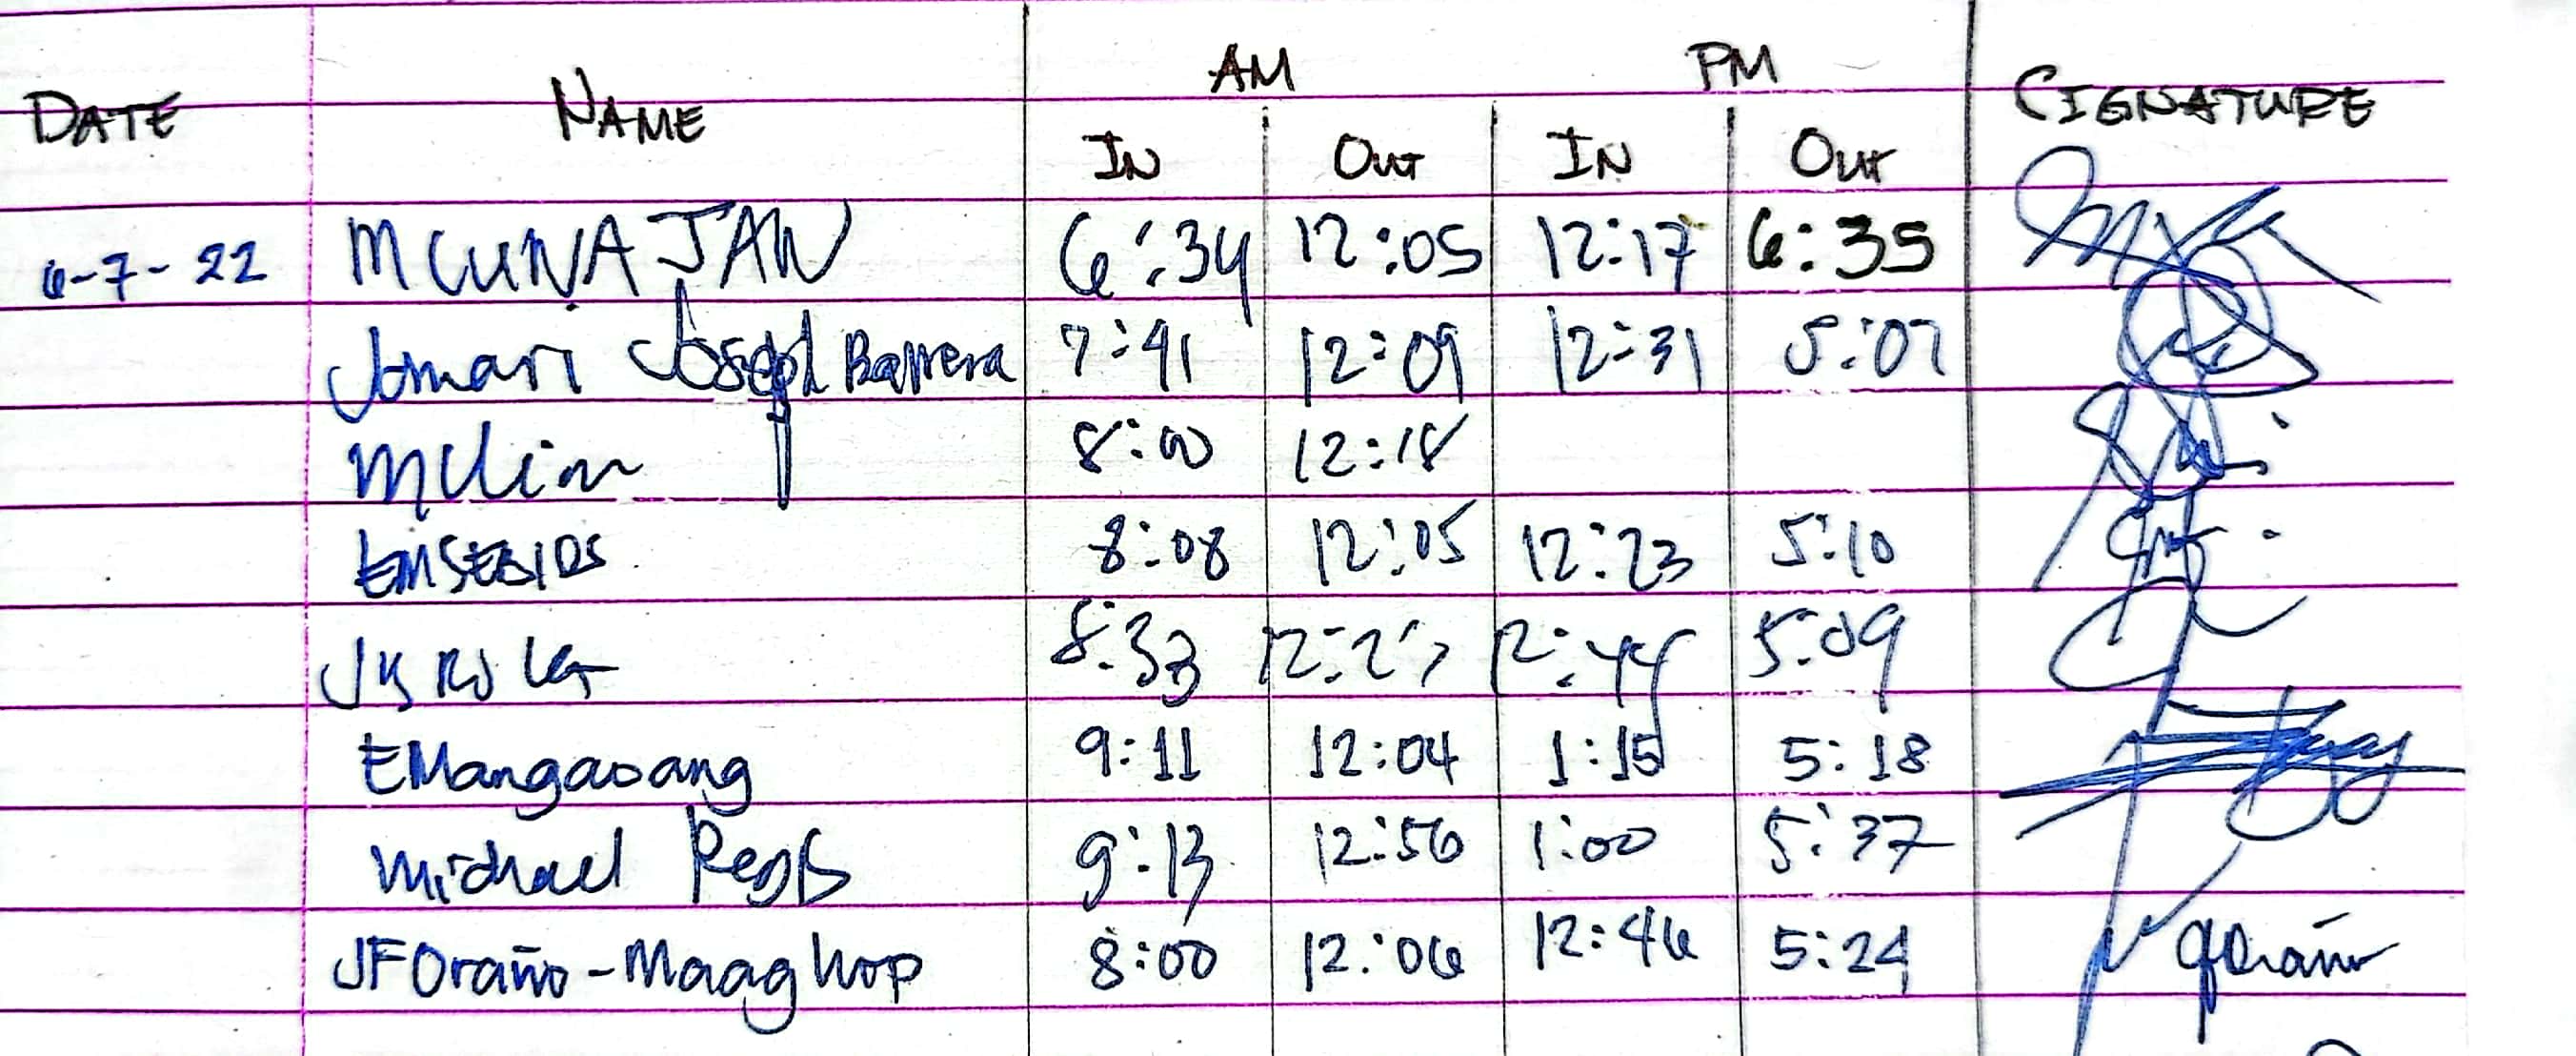 AM PM
DATE NAME IN OUT IN OUT CIGNATURE
6-7-22 MCUNAJAN 6:34 12:05 12:17 6:35
Jomari Joseph Barrera 7:41 12:09 12:31 5:07
MCLim 8:00 12:18
EMSEBIOS 8:08 12:05 12:23 5:10
8:33 12:27 12:44 5:09
EMangaoang 9:11 12:04 1:15 5:18
Michael 9:13 12:56 1:00 5:37
JFOraño-Maaghop 8:00 12:06 12:46 5:24 JFOraño